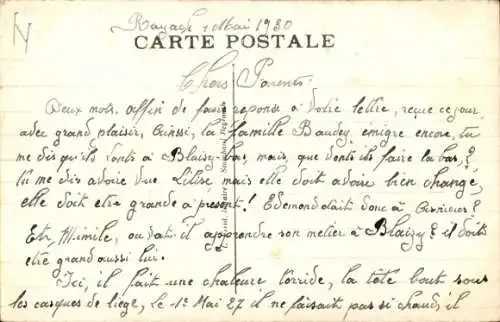 Rayack 1 Mai 1930
CARTE POSTALE
Chers Parents.
Deux mots, affin de faire reponse a votre lettre, reçue ce jour,
avec grand plaisir, Ainssi, la famille Baudey, émigre encore, tu
me dis qu'ils sonts à Blaisy-bas, mais, que vents ils faire la bas,?
Tu me dis avoire vue Lilise mais elle doit avoire bien changé,
elle doit etre grande a présent! Edemond était donc à
Et, Mimile, ou vat il apprendre son metier à Blaizy? il doits
etre grand aussi lui.
Ici, il fait une chaleure torride, la tête bout sous
les casques de liège, le 1er Mai 27 il ne faisait pas si chaud, il